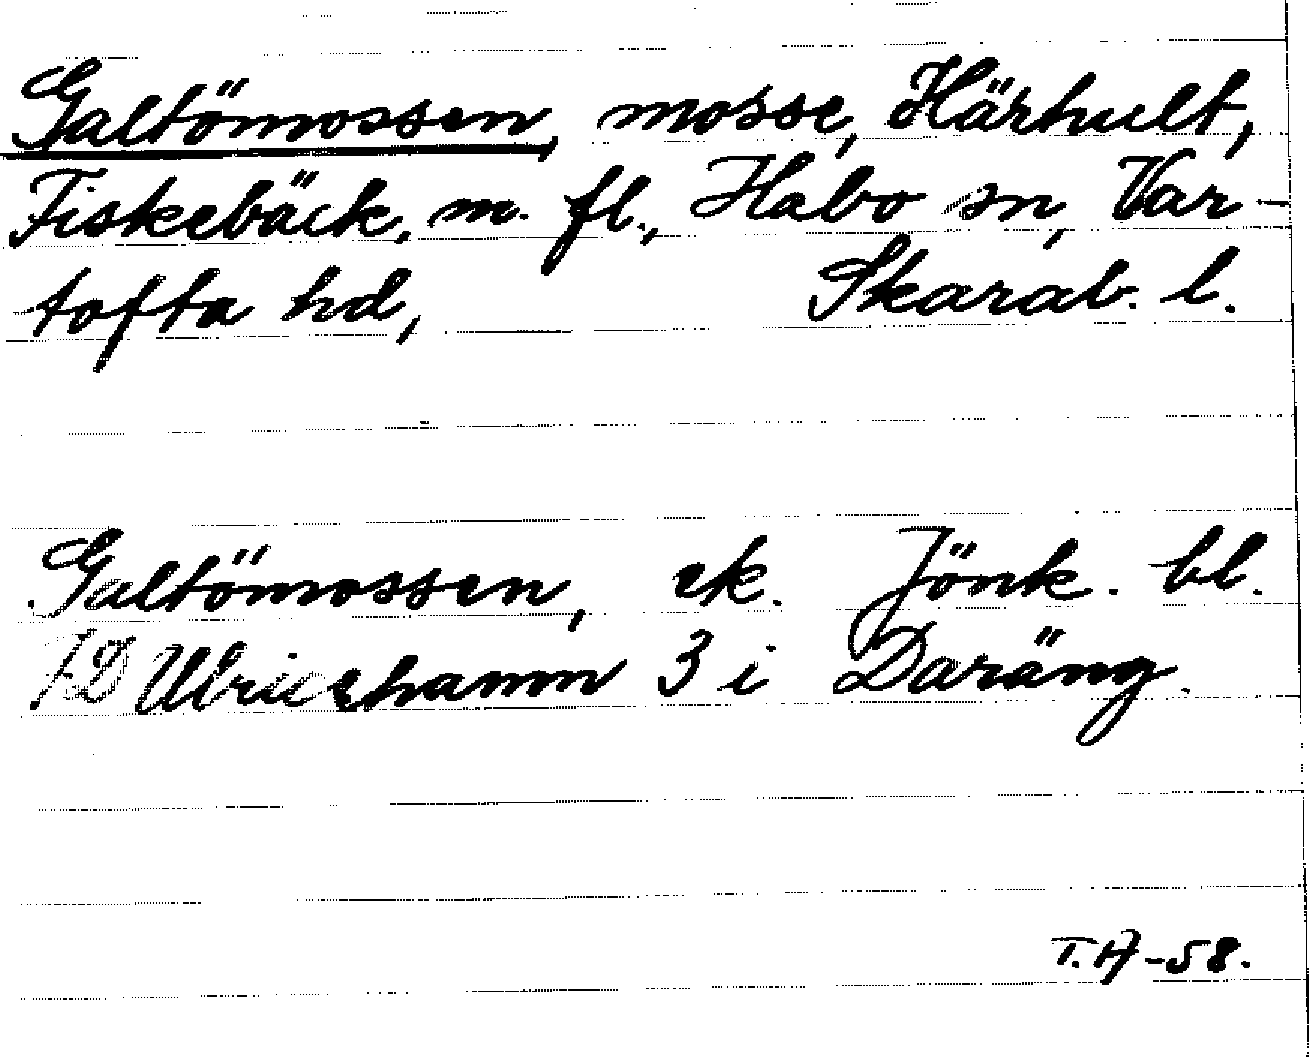 Galtömossen, mosse, Härhult,
Fiskebäck, m. fl., Habo sn, Var-
tofta hd, Skarab. l.
Galtömossen, ek. Jönk. bl.
7D Ulricehamn 3 i Daräng.
T.A-58.